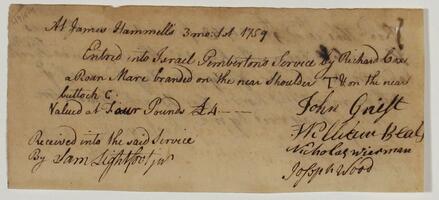 At James Hammell's 3mo: 1st 1759
Entred into Israel Pemberton's Service by Richard Cox
a Roan Mare branded on the near Shoulder T & on the near
buttock C.
Valued at Four Pounds £4
John Griest
William Beals
Nicholas Wierman
Joseph Wood
Received into the said Service
By Sam Lightfoot junr